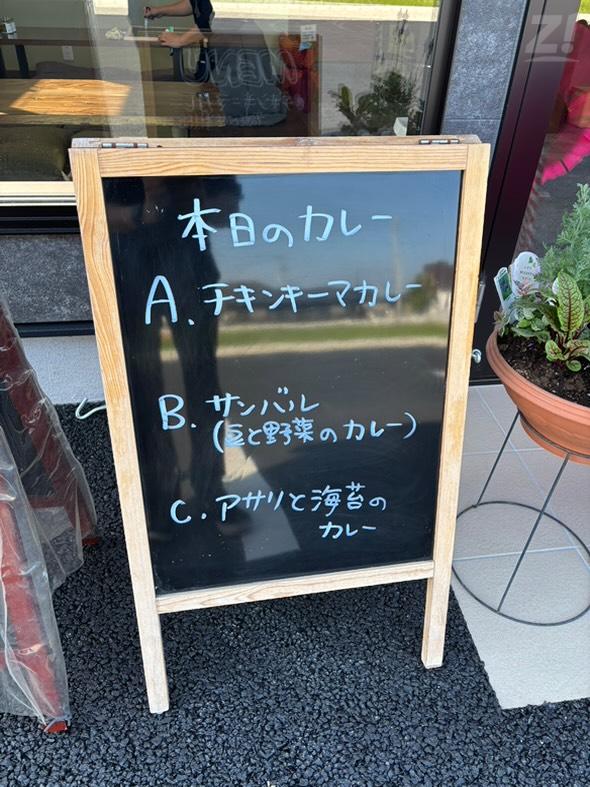 Z!
MENU
本日のカレー
A. チキンキーマカレー
B. サンバル
(豆と野菜のカレー)
C. アサリと海苔の
カレー